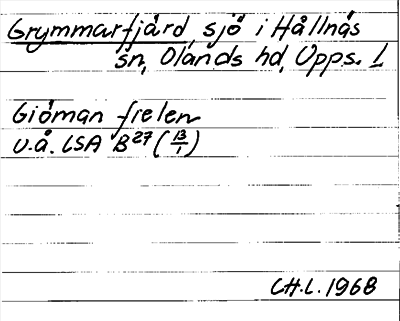 Grymmarfjärd, sjö i Hållnäs
sn, Olands hd, Upps. l
Giöman frelen
u.å. LSA B27 (13/1)
C.H.L. 1968